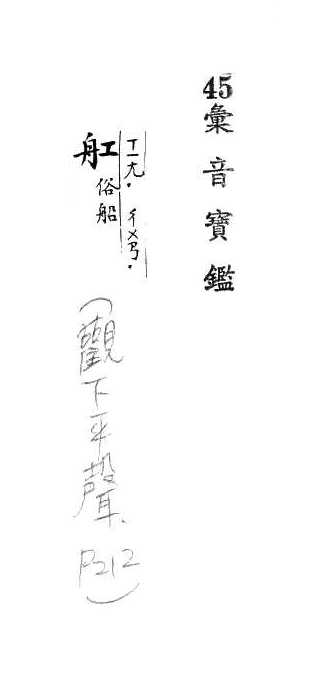 45彙音寶鑑
ㄒㄧㄤ. ㄔㄨㄢ.
舡 俗船
(觀下平聲、P212)